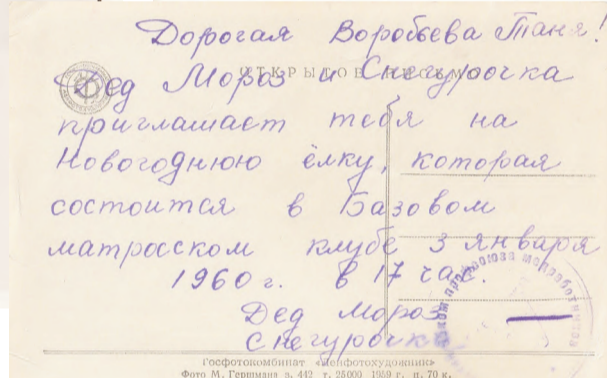 Дорогая Воробьева Таня!
ОТКРЫТОЕ ПИСЬМО
Дед Мороз и Снегурочка
приглашает тебя на
Новогоднюю ёлку, которая
состоится в Базовом
матросском клубе 3 января
1960 г. в 17 час.
Дед Мороз
Снегурочка
Госфотокомбинат «Ленфотохудожник»
Фото М. Гершмана з. 442 т. 25000 1959 г. ц. 70 к.